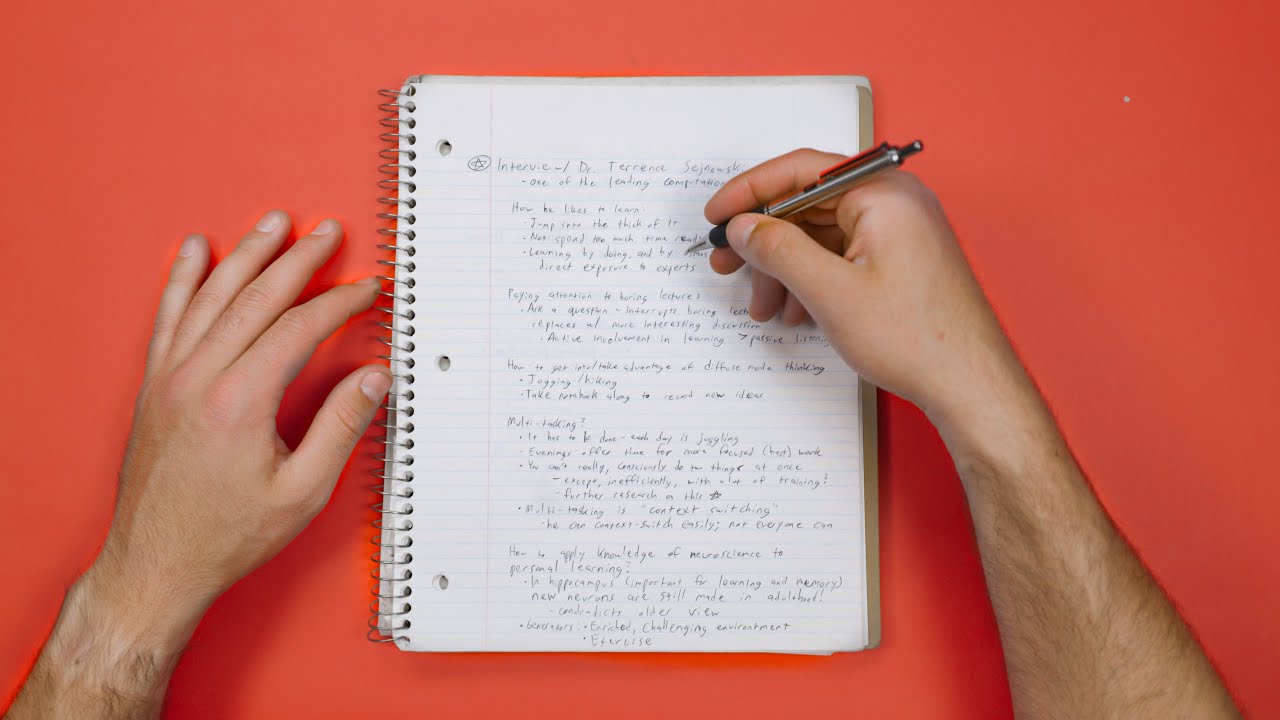 Interview w/ Dr. Terrence Sejnowski
- one of the leading computation
How he likes to learn:
• Jump into the thick of it
• Not spend too much time read
• Learning by doing, and by
direct exposure to experts
Paying attention to boring lectures
• Ask a question - interrupts boring lect
replaces w/ more interesting discussion
• Active involvement in learning > passive listening
How to get into/take advantage of diffuse mode thinking
• Jogging/hiking
• Take notebook along to record new ideas
Multi-tasking?
• It has to be done - each day is juggling
• Evenings offer time for more focused (best) work
• You can't really, consciously do two things at once
- except, inefficiently, with a lot of training?
- further research on this
• Multi-tasking is "context switching"
- he can context-switch easily; not everyone can
How to apply knowledge of neuroscience to
personal learning?
• In hippocampus (important for learning and memory)
new neurons are still made in adulthood!
- contradicts older view
• Generators: • Enriched, challenging environment
• Exercise